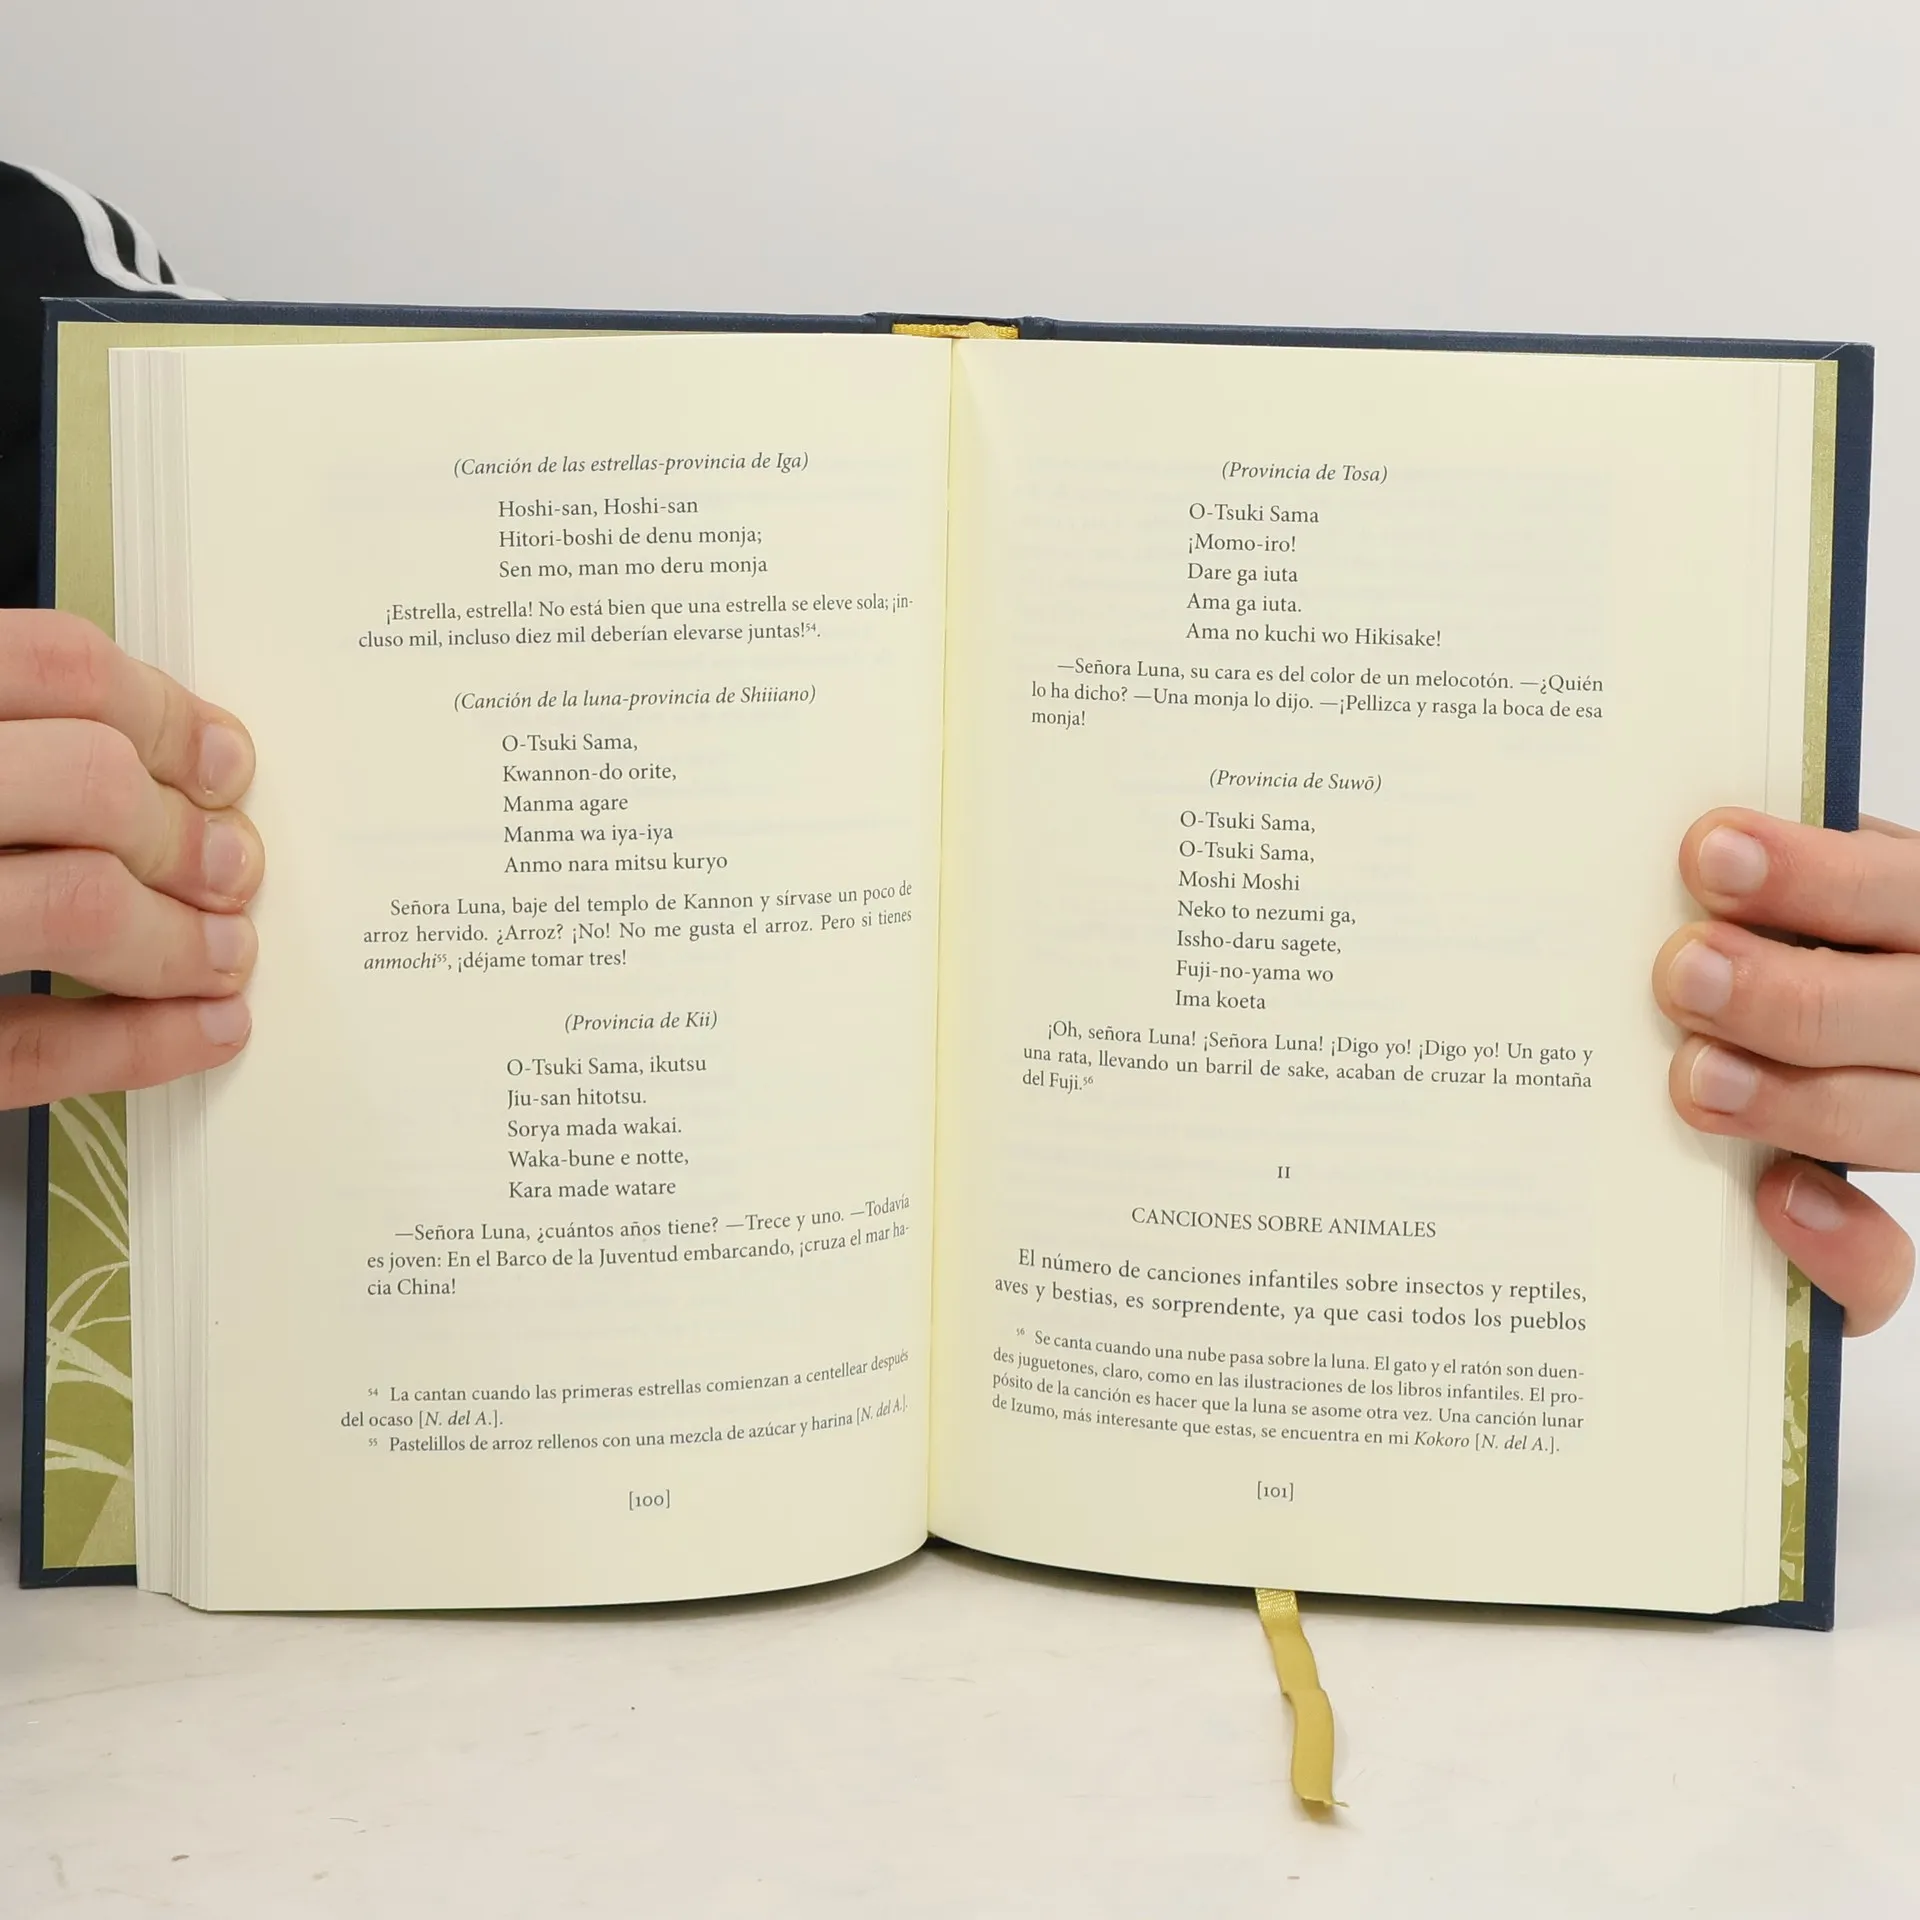 (Canción de las estrellas-provincia de Iga)
Hoshi-san, Hoshi-san
Hitori-boshi de denu monja;
Sen mo, man mo deru monja
¡Estrella, estrella! No está bien que una estrella se eleve sola; ¡in-
cluso mil, incluso diez mil deberían elevarse juntas!⁵⁴.
(Canción de la luna-provincia de Shiiiano)
O-Tsuki Sama,
Kwannon-do orite,
Manma agare
Manma wa iya-iya
Anmo nara mitsu kuryo
Señora Luna, baje del templo de Kannon y sírvase un poco de
arroz hervido. ¿Arroz? ¡No! No me gusta el arroz. Pero si tienes
anmochi⁵⁵, ¡déjame tomar tres!
(Provincia de Kii)
O-Tsuki Sama, ikutsu
Jiu-san hitotsu.
Sorya mada wakai.
Waka-bune e notte,
Kara made watare
—Señora Luna, ¿cuántos años tiene? —Trece y uno. —Todavía
es joven: En el Barco de la Juventud embarcando, ¡cruza el mar ha-
cia China!
⁵⁴ La cantan cuando las primeras estrellas comienzan a centellear después
del ocaso [N. del A.].
⁵⁵ Pastelillos de arroz rellenos con una mezcla de azúcar y harina [N. del A.].
[100]
(Provincia de Tosa)
O-Tsuki Sama
¡Momo-iro!
Dare ga iuta
Ama ga iuta.
Ama no kuchi wo Hikisake!
—Señora Luna, su cara es del color de un melocotón. —¿Quién
lo ha dicho? —Una monja lo dijo. —¡Pellizca y rasga la boca de esa
monja!
(Provincia de Suwō)
O-Tsuki Sama,
O-Tsuki Sama,
Moshi Moshi
Neko to nezumi ga,
Issho-daru sagete,
Fuji-no-yama wo
Ima koeta
¡Oh, señora Luna! ¡Señora Luna! ¡Digo yo! ¡Digo yo! Un gato y
una rata, llevando un barril de sake, acaban de cruzar la montaña
del Fuji.⁵⁶
II
CANCIONES SOBRE ANIMALES
El número de canciones infantiles sobre insectos y reptiles,
aves y bestias, es sorprendente, ya que casi todos los pueblos
⁵⁶ Se canta cuando una nube pasa sobre la luna. El gato y el ratón son duen-
des juguetones, claro, como en las ilustraciones de los libros infantiles. El pro-
pósito de la canción es hacer que la luna se asome otra vez. Una canción lunar
de Izumo, más interesante que estas, se encuentra en mi Kokoro [N. del A.].
[101]